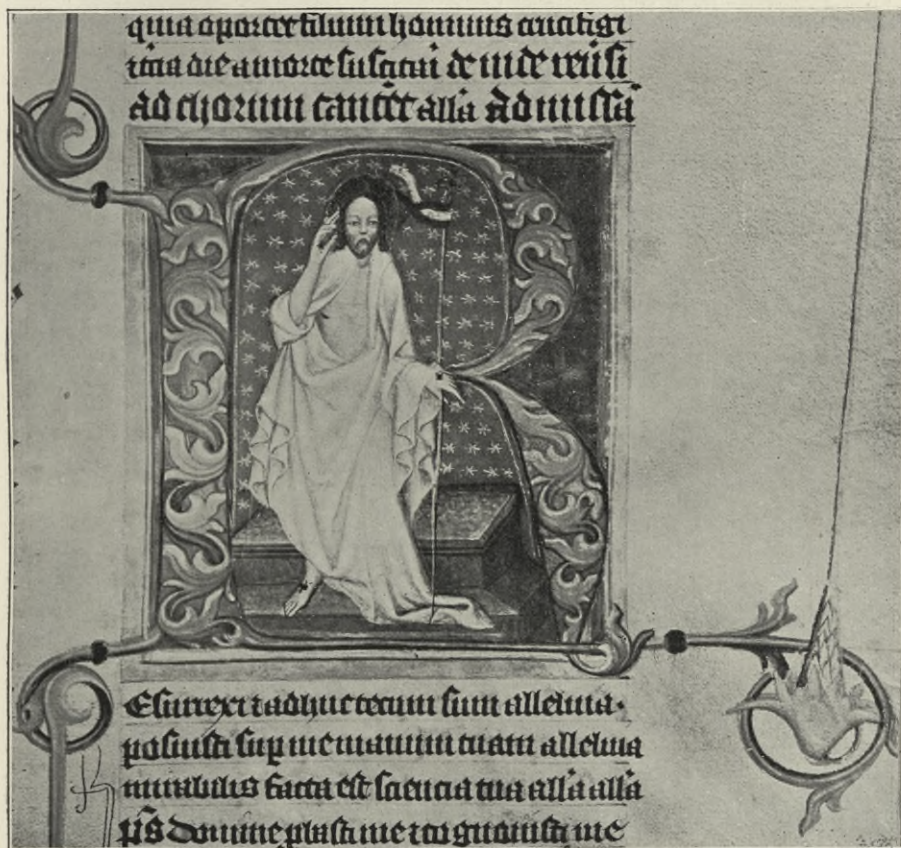 quia oportet filium hominis crucifigi
t͛cia die a morte suscitari de inde reu͛si
ad chorum cantet᷑ all͛a Ad missā
Esurrexi ⁊ adhuc tecum sum alleluia·
posuisti sup̱ me manum tuam alleluia
mirabilis facta est sciencia tua all͛a all͛a
p̄s Domine ꝓbasti me ⁊ cognouisti me